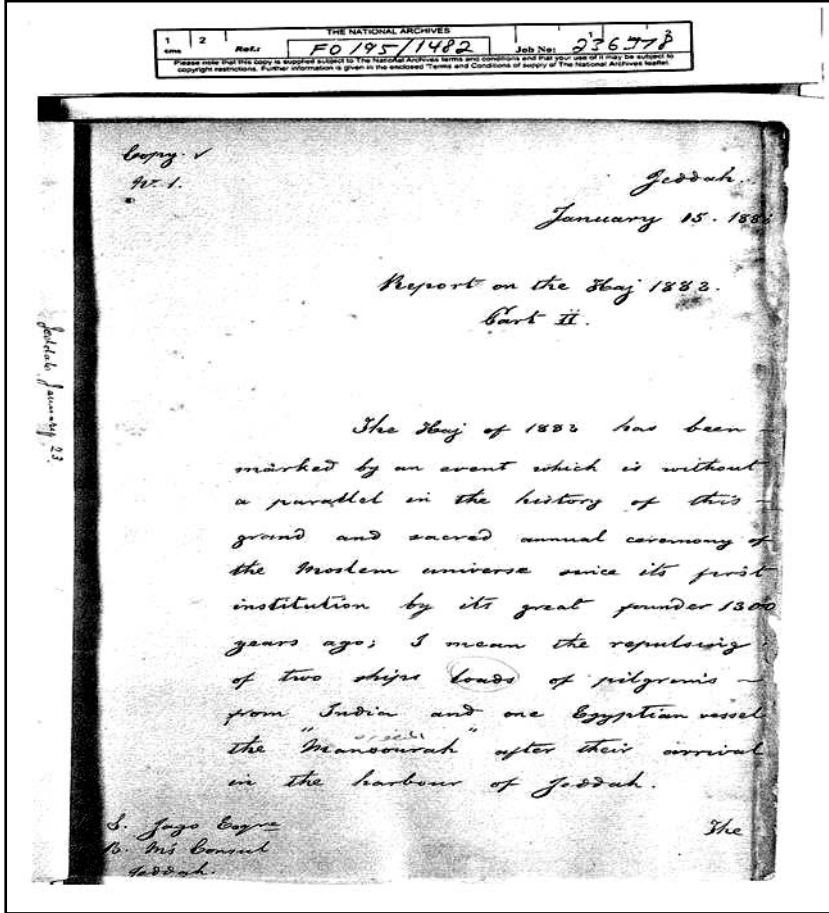 THE NATIONAL ARCHIVES
1 2
cms
Ref.: FO 195/1482 Job No: 236978
Please note that this copy is supplied subject to The National Archives terms and conditions and that your use of it may be subject to
copyright restrictions. Further information is given in the enclosed 'Terms and Conditions of supply of The National Archives' leaflet
Copy. ✓
No. 1.
Jeddah.
January 15. 1883
Report on the Haj 1882.
Part II.
Jeddah January 23.
The Haj of 1882 has been
marked by an event which is without
a parallel in the history of this
grand and sacred annual ceremony of
the Moslem universe since its first
institution by its great founder 1300
years ago; I mean the repulsing
of two ships loads of pilgrims
from India and one Egyptian vessel
the "Mansourah" after their arrival
in the harbour of Jeddah.
The
S. Jago Esqre
B. M's Consul
Jeddah.